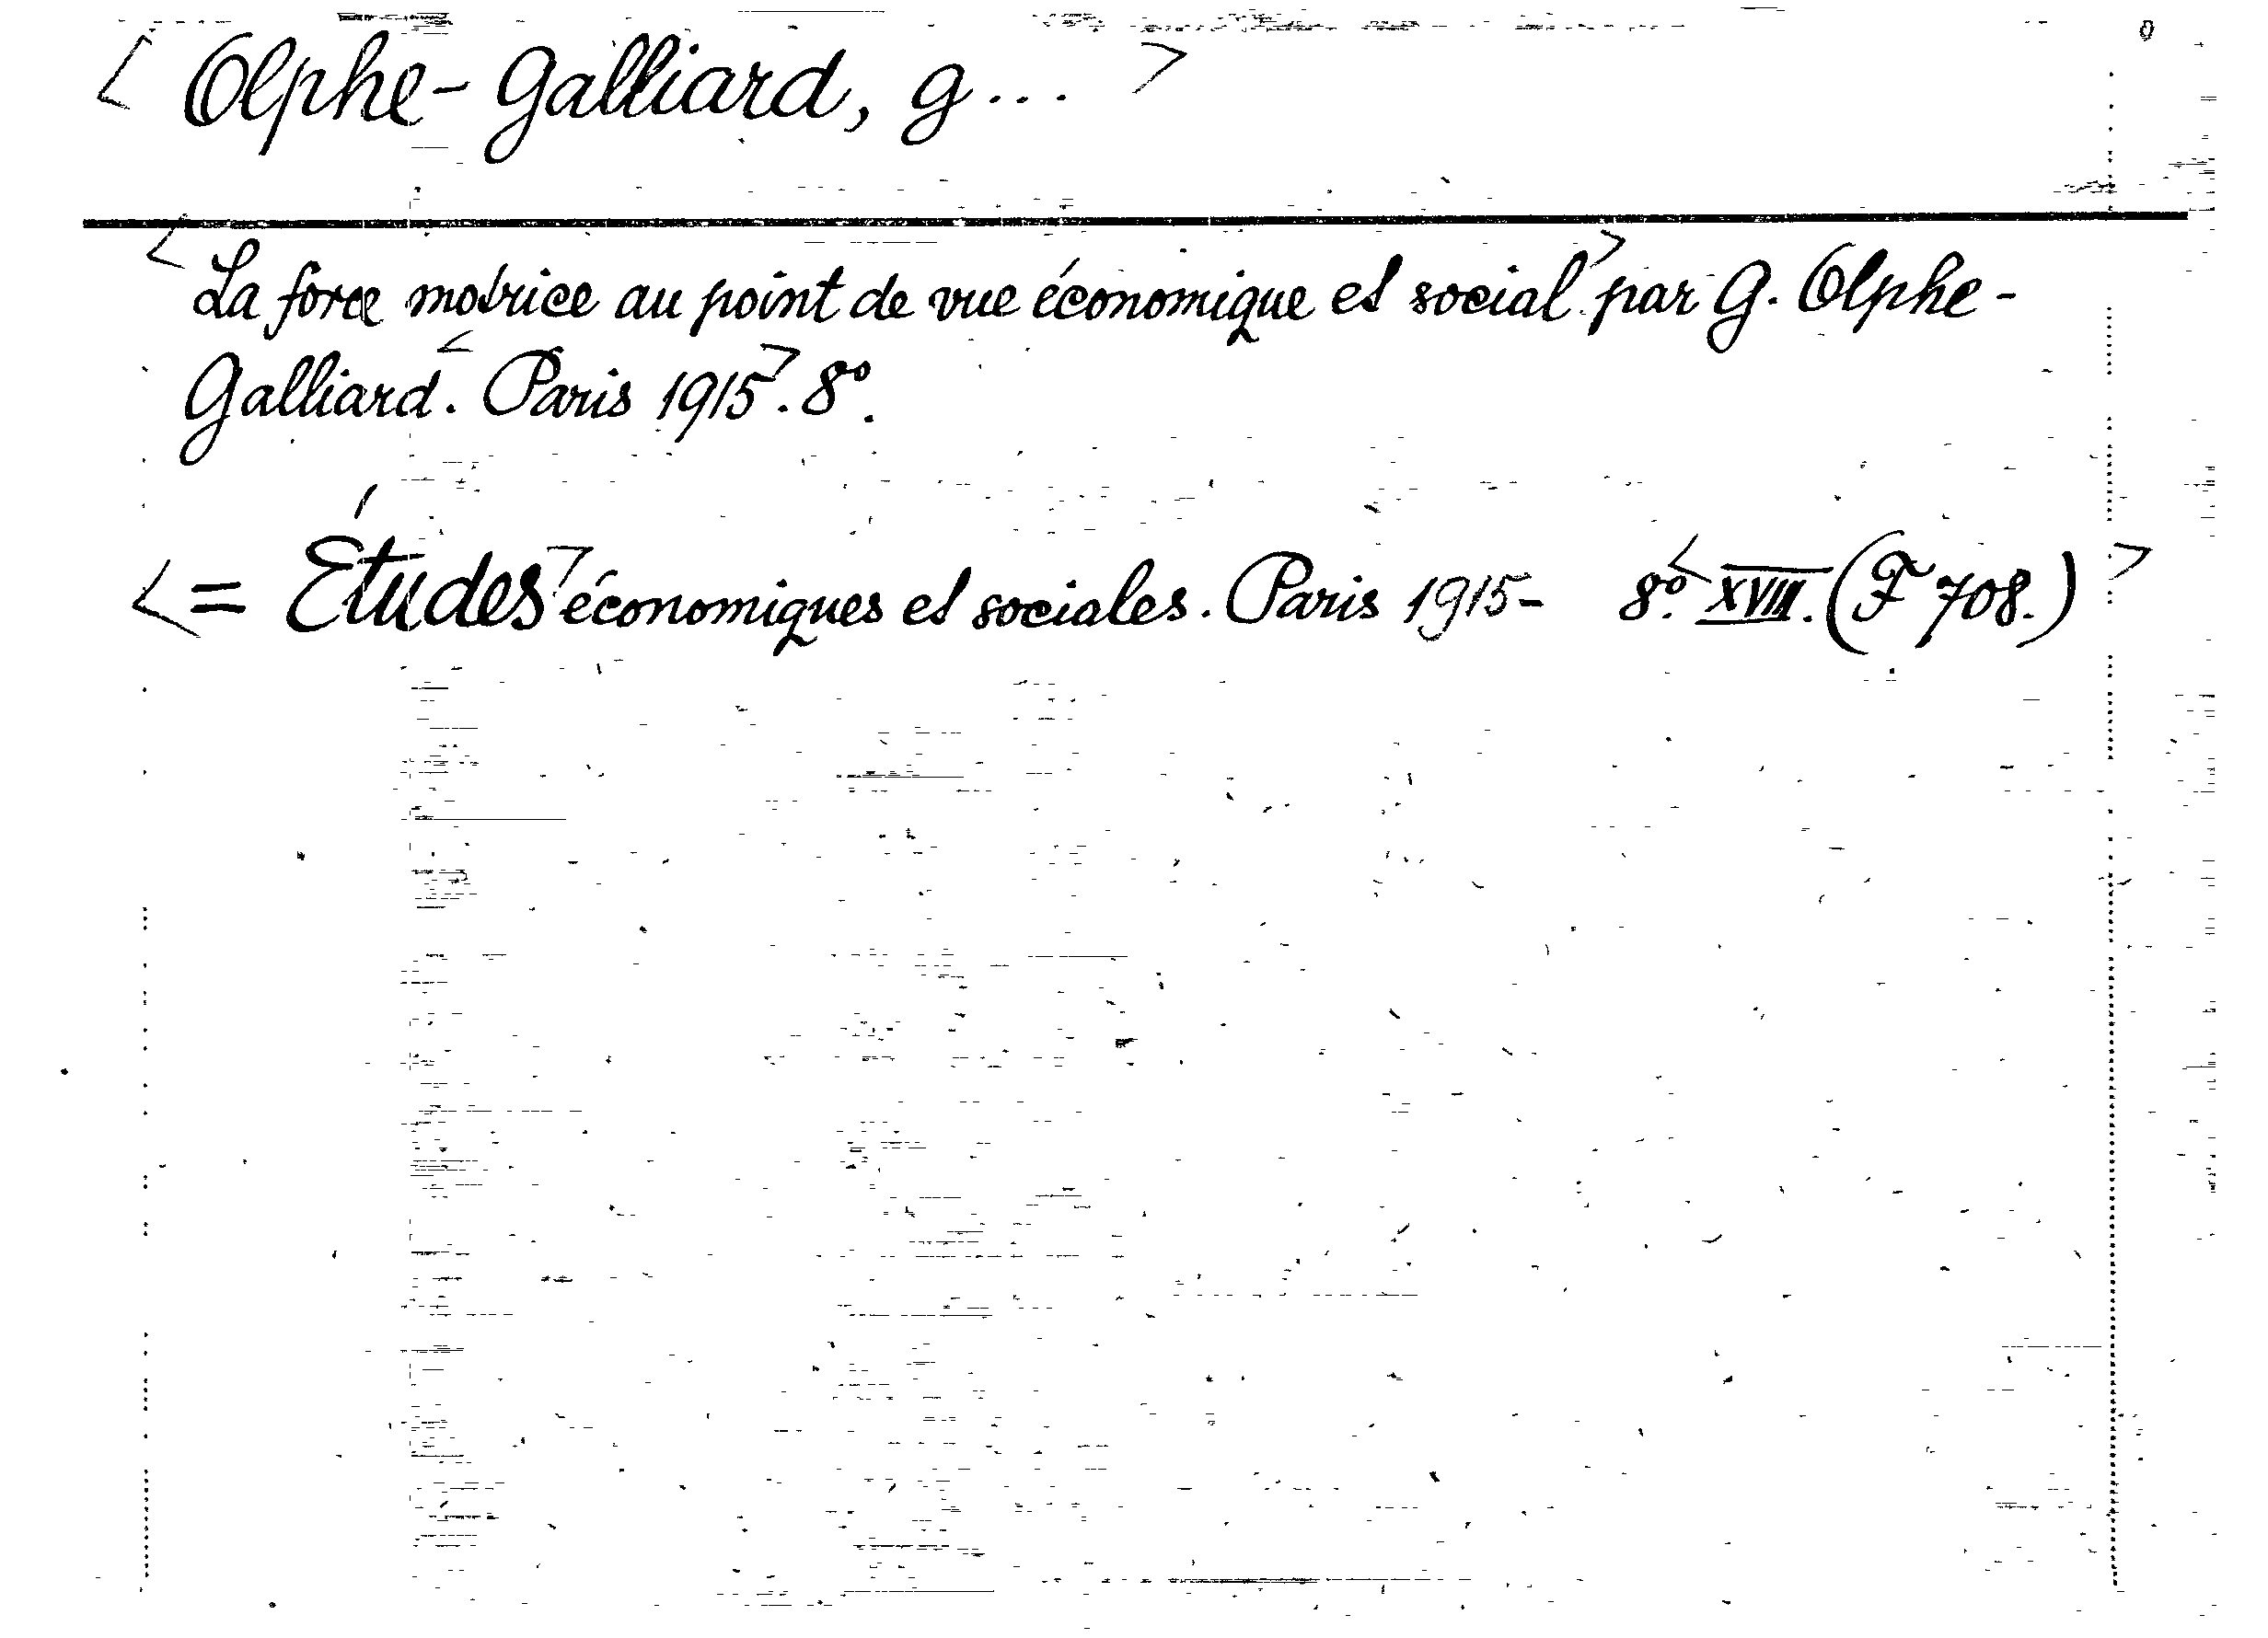 < Olphe-Galliard, G... >
< La force motrice au point de vue économique et social > par G. Olphe-
Galliard. < Paris 1915 >. 8º.
< = Études > économiques et sociales. Paris 1915- 8º. < XVIII. (F 708.) >